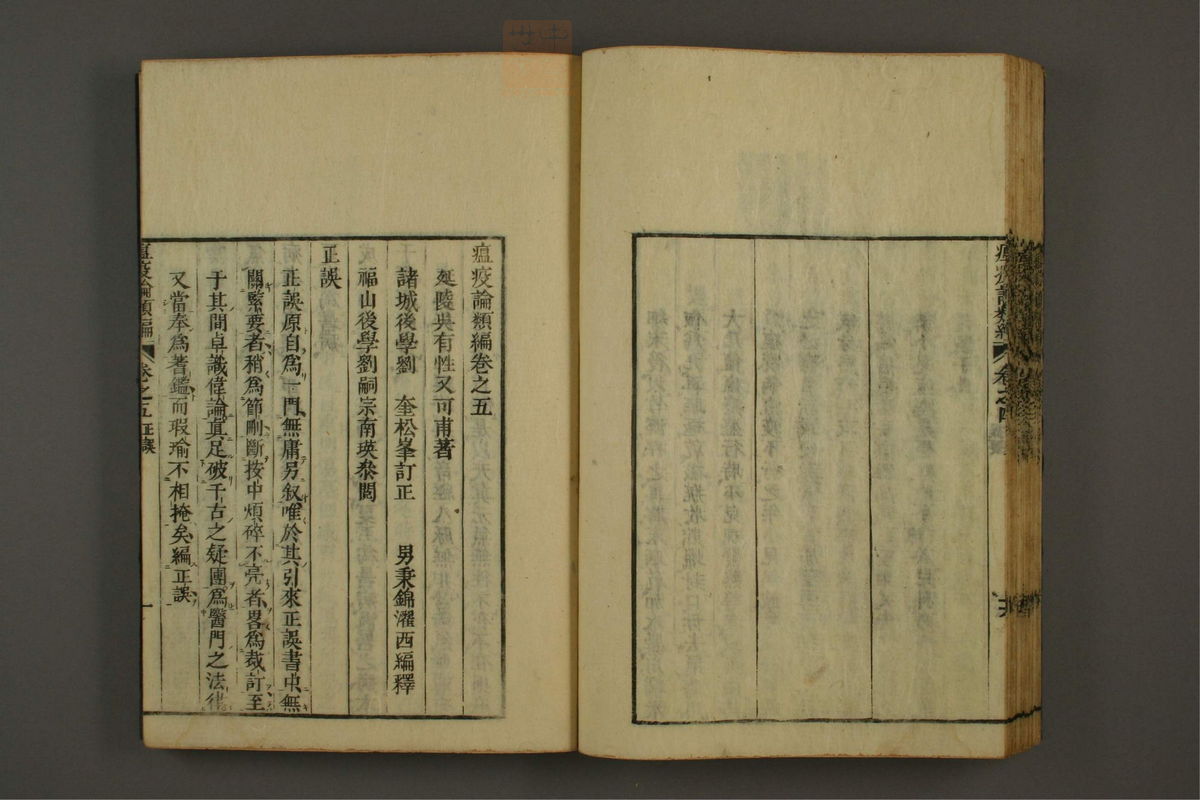 瘟疫論類編
卷之四
瘟疫論類編卷之五
延陵吳有性又可甫著
諸城後學劉　奎松峯訂正　男秉錦濯西編釋
福山後學劉嗣宗南瑛叅閲
正誤
正誤原自爲一門無庸另叙唯於其引來正誤書中無
關緊要者稍爲節刪斷按中煩碎不亮者畧爲裁訂至
于其間卓識偉論眞足破千古之疑團爲醫門之法律
又當奉爲蓍鑑而瑕瑜不相掩矣編正誤
瘟疫論類編
卷之五正誤
一